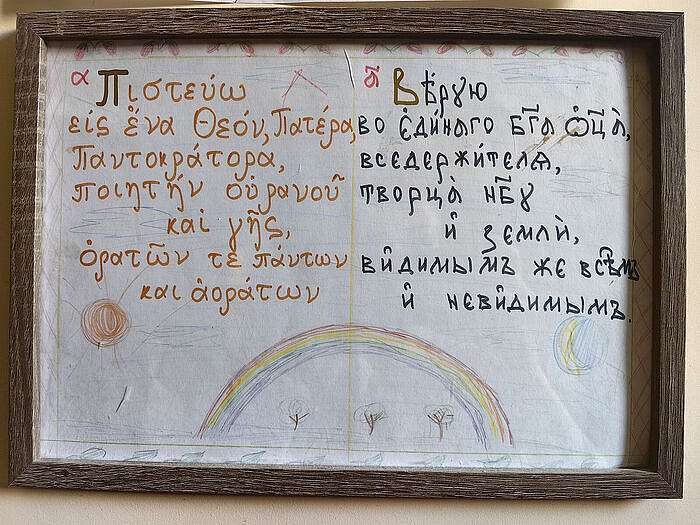 α Πιστεύω
εἰς ἕνα Θεόν, Πατέρα,
Παντοκράτορα,
ποιητήν οὐρανοῦ
καί γῆς,
ὁρατῶν τε πάντων
και ἀοράτων
а҃ Вѣрую
во є҆ди́наго бг҃а ѻ҆ц҃а̀,
вседержи́телѧ,
творца̀ нб҃у
и҆ землѝ,
ви́димымъ же всѣ̑мъ
и҆ неви́димымъ.